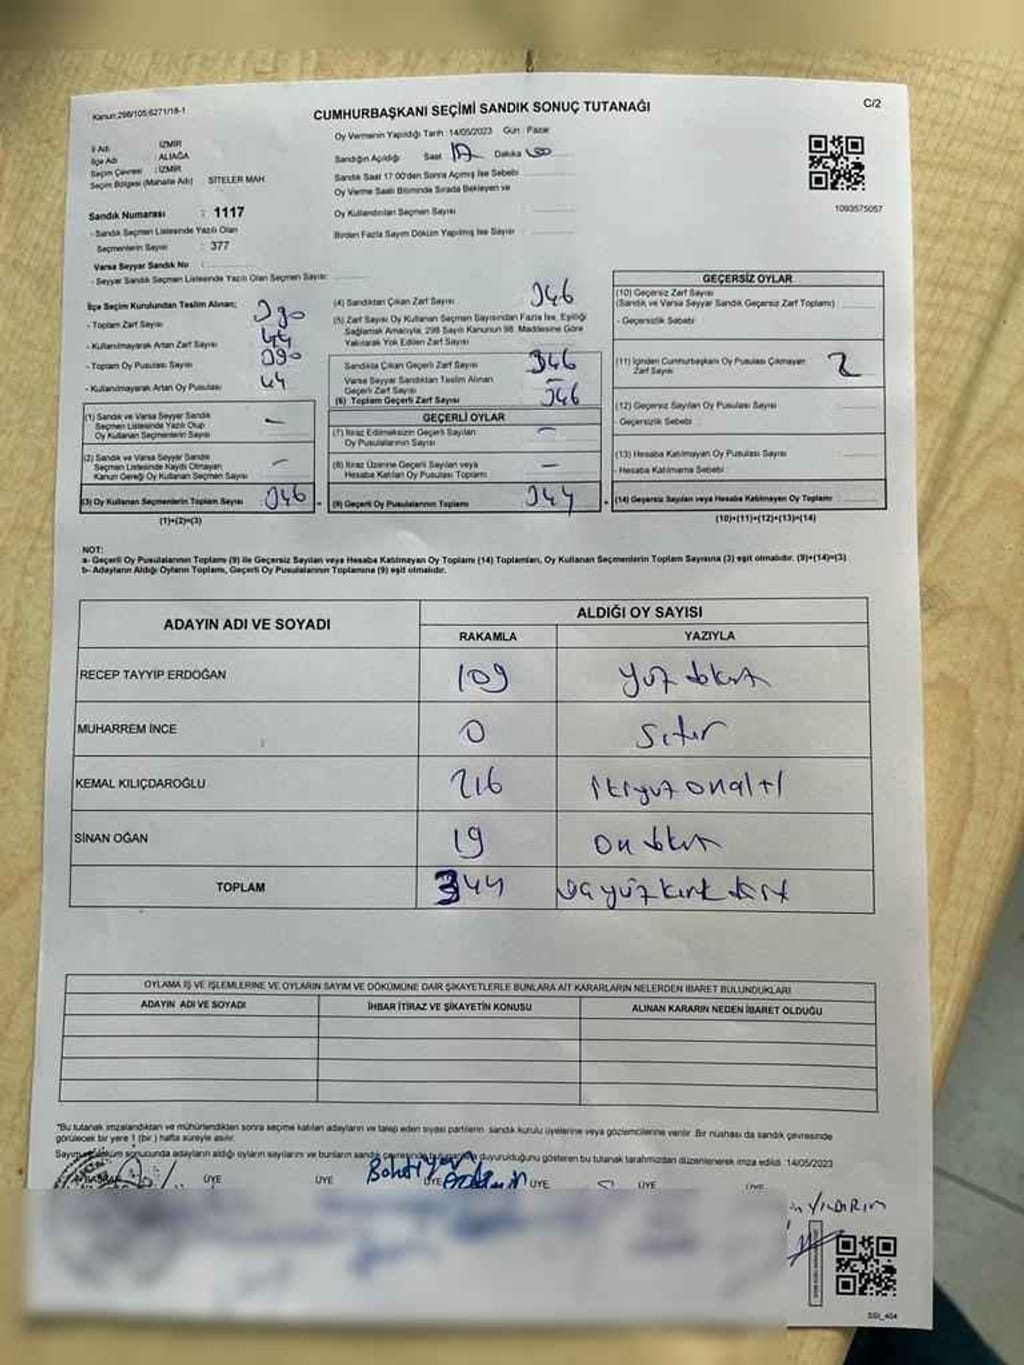 Kanun:298/105;6271/18-1
CUMHURBAŞKANI SEÇİMİ SANDIK SONUÇ TUTANAĞI
C/2
İl Adı : İZMİR
İlçe Adı : ALİAĞA
Seçim Çevresi : İZMİR
Seçim Bölgesi (Mahalle Adı) : SİTELER MAH.
Oy Vermenin Yapıldığı Tarih : 14/05/2023 Gün : Pazar
Sandığın Açıldığı Saat 17 Dakika 00
Sandık Saat 17:00'den Sonra Açımış İse Sebebi
Oy Verme Saati Bitiminde Sırada Bekleyen ve
Oy Kullandırılan Seçmen Sayısı
Birden Fazla Sayım Döküm Yapılmış İse Sayısı
1093575057
Sandık Numarası : 1117
- Sandık Seçmen Listesinde Yazılı Olan
Seçmenlerin Sayısı : 377
Varsa Seyyar Sandık No :
- Seyyar Sandık Seçmen Listesinde Yazılı Olan Seçmen Sayısı:
İlçe Seçim Kurulundan Teslim Alınan;
- Toplam Zarf Sayısı 390
- Kullanılmayarak Artan Zarf Sayısı 44
- Toplam Oy Pusulası Sayısı 390
- Kullanılmayarak Artan Oy Pusulası 44
(1) Sandık ve Varsa Seyyar Sandık
Seçmen Listesinde Yazılı Olup
Oy Kullanan Seçmenlerin Sayısı —
(2) Sandık ve Varsa Seyyar Sandık
Seçmen Listesinde Kaydı Olmayan
Kanun Gereği Oy Kullanan Seçmen Sayısı —
(3) Oy Kullanan Seçmenlerin Toplam Sayısı 346
(1)+(2)=(3)
(4) Sandıktan Çıkan Zarf Sayısı 346
(5) Zarf Sayısı Oy Kullanan Seçmen Sayısından Fazla İse, Eşitliği
Sağlamak Amacıyla, 298 Sayılı Kanunun 98. Maddesine Göre
Yakılarak Yok Edilen Zarf Sayısı
Sandıkta Çıkan Geçerli Zarf Sayısı 346
Varsa Seyyar Sandıktan Teslim Alınan
Geçerli Zarf Sayısı —
(6) Toplam Geçerli Zarf Sayısı 346
GEÇERLİ OYLAR
(7) İtiraz Edilmeksizin Geçerli Sayılan
Oy Pusulalarının Sayısı —
(8) İtiraz Üzerine Geçerli Sayılan veya
Hesaba Katılan Oy Pusulası Toplamı —
(9) Geçerli Oy Pusulalarının Toplamı 344
GEÇERSİZ OYLAR
(10) Geçersiz Zarf Sayısı
(Sandık ve Varsa Seyyar Sandık Geçersiz Zarf Toplamı)
- Geçersizlik Sebebi :
(11) İçinden Cumhurbaşkanı Oy Pusulası Çıkmayan
Zarf Sayısı 2
(12) Geçersiz Sayılan Oy Pusulası Sayısı
- Geçersizlik Sebebi :
(13) Hesaba Katılmayan Oy Pusulası Sayısı
- Hesaba Katılmama Sebebi :
(14) Geçersiz Sayılan veya Hesaba Katılmayan Oy Toplamı
(10)+(11)+(12)+(13)=(14)
NOT:
a- Geçerli Oy Pusulalarının Toplamı (9) ile Geçersiz Sayılan veya Hesaba Katılmayan Oy Toplamı (14) Toplamları, Oy Kullanan Seçmenlerin Toplam Sayısına (3) eşit olmalıdır. (9)+(14)=(3)
b- Adayların Aldığı Oyların Toplamı, Geçerli Oy Pusulalarının Toplamına (9) eşit olmalıdır.
ADAYIN ADI VE SOYADI
ALDIĞI OY SAYISI
RAKAMLA YAZIYLA
RECEP TAYYİP ERDOĞAN 109 yüz dokuz
MUHARREM İNCE 0 Sıfır
KEMAL KILIÇDAROĞLU 216 ikiyüz onaltı
SİNAN OĞAN 19 on dokuz
TOPLAM 344 üçyüz kırk dört
OYLAMA İŞ VE İŞLEMLERİNE VE OYLARIN SAYIM VE DÖKÜMÜNE DAİR ŞİKAYETLERLE BUNLARA AİT KARARLARIN NELERDEN İBARET BULUNDUKLARI
ADAYIN ADI VE SOYADI İHBAR İTİRAZ VE ŞİKAYETİN KONUSU ALINAN KARARIN NEDEN İBARET OLDUĞU
*Bu tutanak imzalandıktan ve mühürlendikten sonra seçime katılan adayların ve talep eden siyasi partilerin sandık kurulu üyelerine veya gözlemcilerine verilir. Bir nüshası da sandık çevresinde
görülecek bir yere 1 (bir) hafta süreyle asılır.
Sayım döküm sonucunda adayların aldığı oyların sayılarını ve bunların sandık çevresinde duyurulduğunu gösteren bu tutanak tarafımızdan düzenlenerek imza edildi. 14/05/2023
ÜYE ÜYE ÜYE ÜYE ÜYE ÜYE
Bahtiyar
YILDIRIM
SSI_404